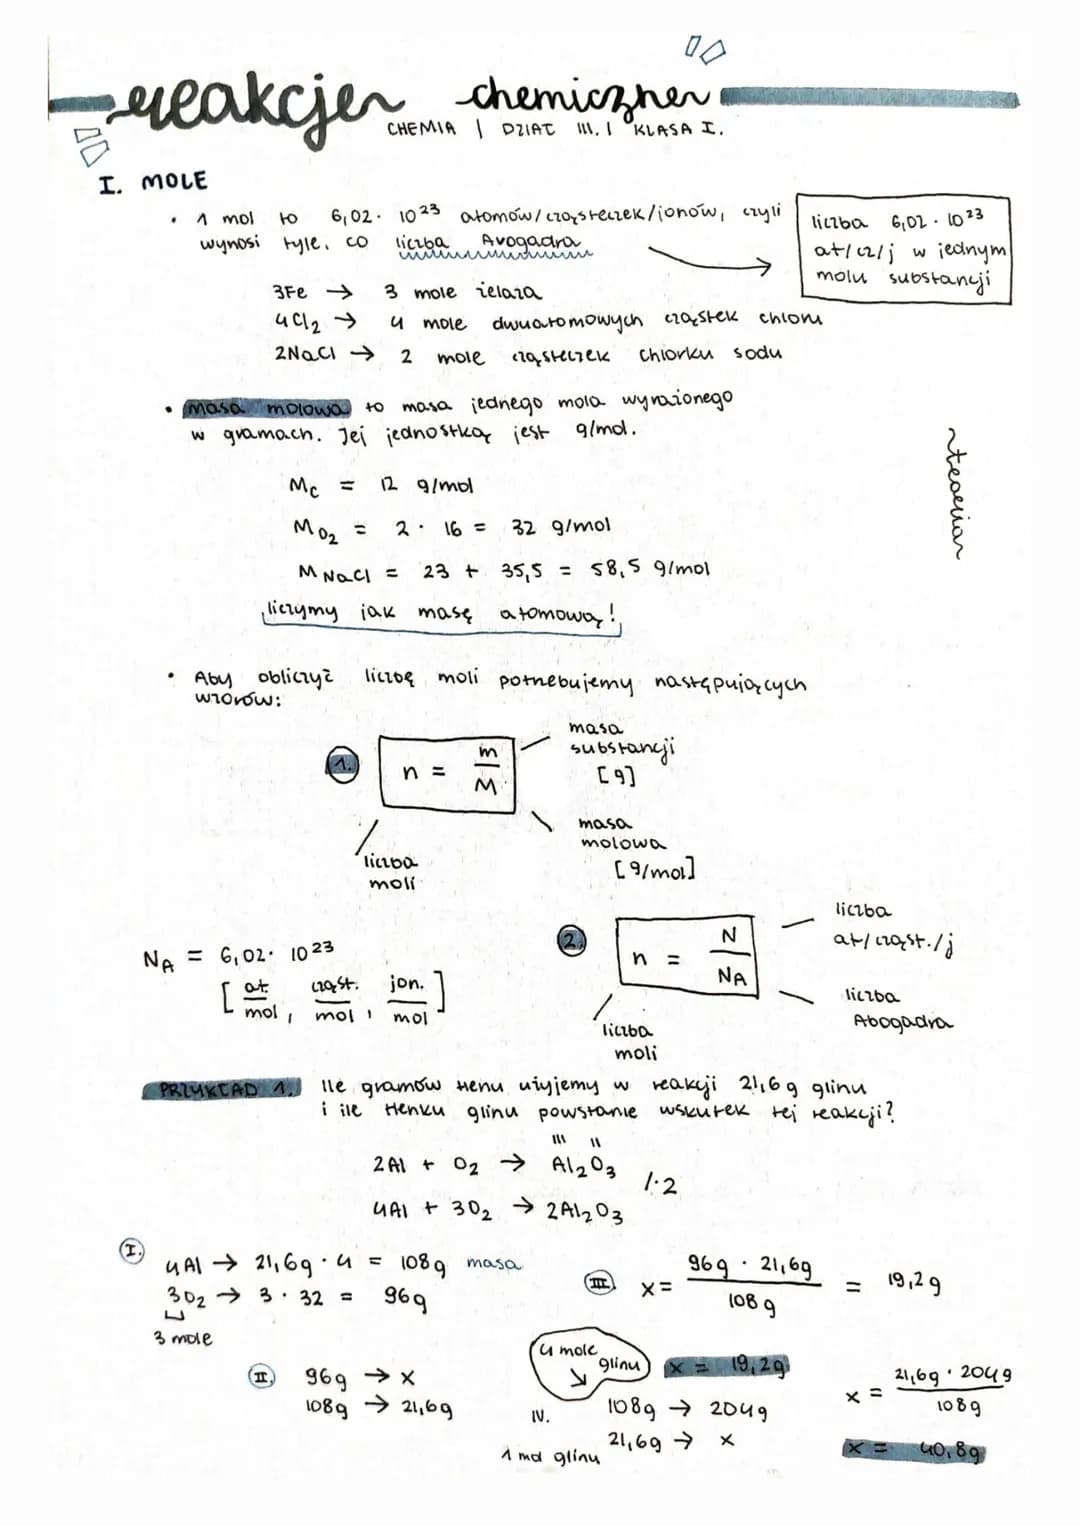 reakcje chemiczne
CHEMIA | DZIAŁ III. | KLASA I.
I. MOLE
• 1 mol to 6,02 · 10²³ atomów/cząsteczek/jonów, czyli
wynosi tyle, co liczba Avogadra
liczba 6,02 · 10²³
at/cz/j w jednym
molu substancji
3Fe → 3 mole żelaza
4Cl₂ → 4 mole dwuatomowych cząstek chloru
2NaCl → 2 mole cząsteczek chlorku sodu
• masa molowa to masa jednego mola wyrażonego
w gramach. Jej jednostką jest g/mol.
~teoria~
M_C = 12 g/mol
M_O₂ = 2 · 16 = 32 g/mol
M_NaCl = 23 + 35,5 = 58,5 g/mol
liczymy jak masę atomową!
• Aby obliczyć liczbę moli potrzebujemy następujących
wzorów:
1. n = m/M
masa
substancji
[g]
masa
molowa
[g/mol]
liczba
moli
N_A = 6,02 · 10²³
[at./mol, cząst./mol, jon./mol]
2. n = N/NA
liczba
at/cząst./j
liczba
Abogadra
liczba
moli
PRZYKŁAD 1. Ile gramów tlenu użyjemy w reakcji 21,6g glinu
i ile tlenku glinu powstanie wskutek tej reakcji?
III II
2Al + O₂ → Al₂O₃
/·2
4Al + 3O₂ → 2Al₂O₃
I.
4Al → 21,6g · 4 = 108g masa
3O₂ → 3 · 32 = 96g
3 mole
II. 96g → x
108g → 21,6g
III. x = 96g · 21,6g / 108g = 19,2g
x = 19,2g
4 mole
glinu
IV. 108g → 204g
21,6g → x
1 mol glinu
x = 21,6g · 204g / 108g
x = 40,8g